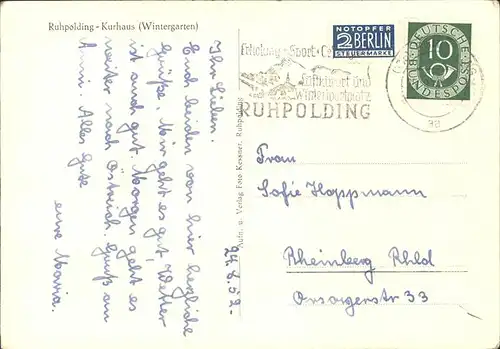 Ruhpolding - Kurhaus (Wintergarten)
Ihr Lieben.
Euch beiden von hier herzliche
Grüße. Mir geht es gut, Wetter
ist auch gut. Morgen geht es
weiter nach Östreich. Gruß an
Anni. Alles Gute
eure Maria.
24.8.52-
Aufn. u. Verlag Foto Kessner, Ruhpolding
Erholung - Sport
Luftkurort und
Wintersportplatz
RUHPOLDING
NOTOPFER
2 BERLIN
STEUERMARKE
DEUTSCHE BUNDESPOST
10
Frau
Sofie Hoppmann
Rheinberg Rhld
Orsoyerstr 33